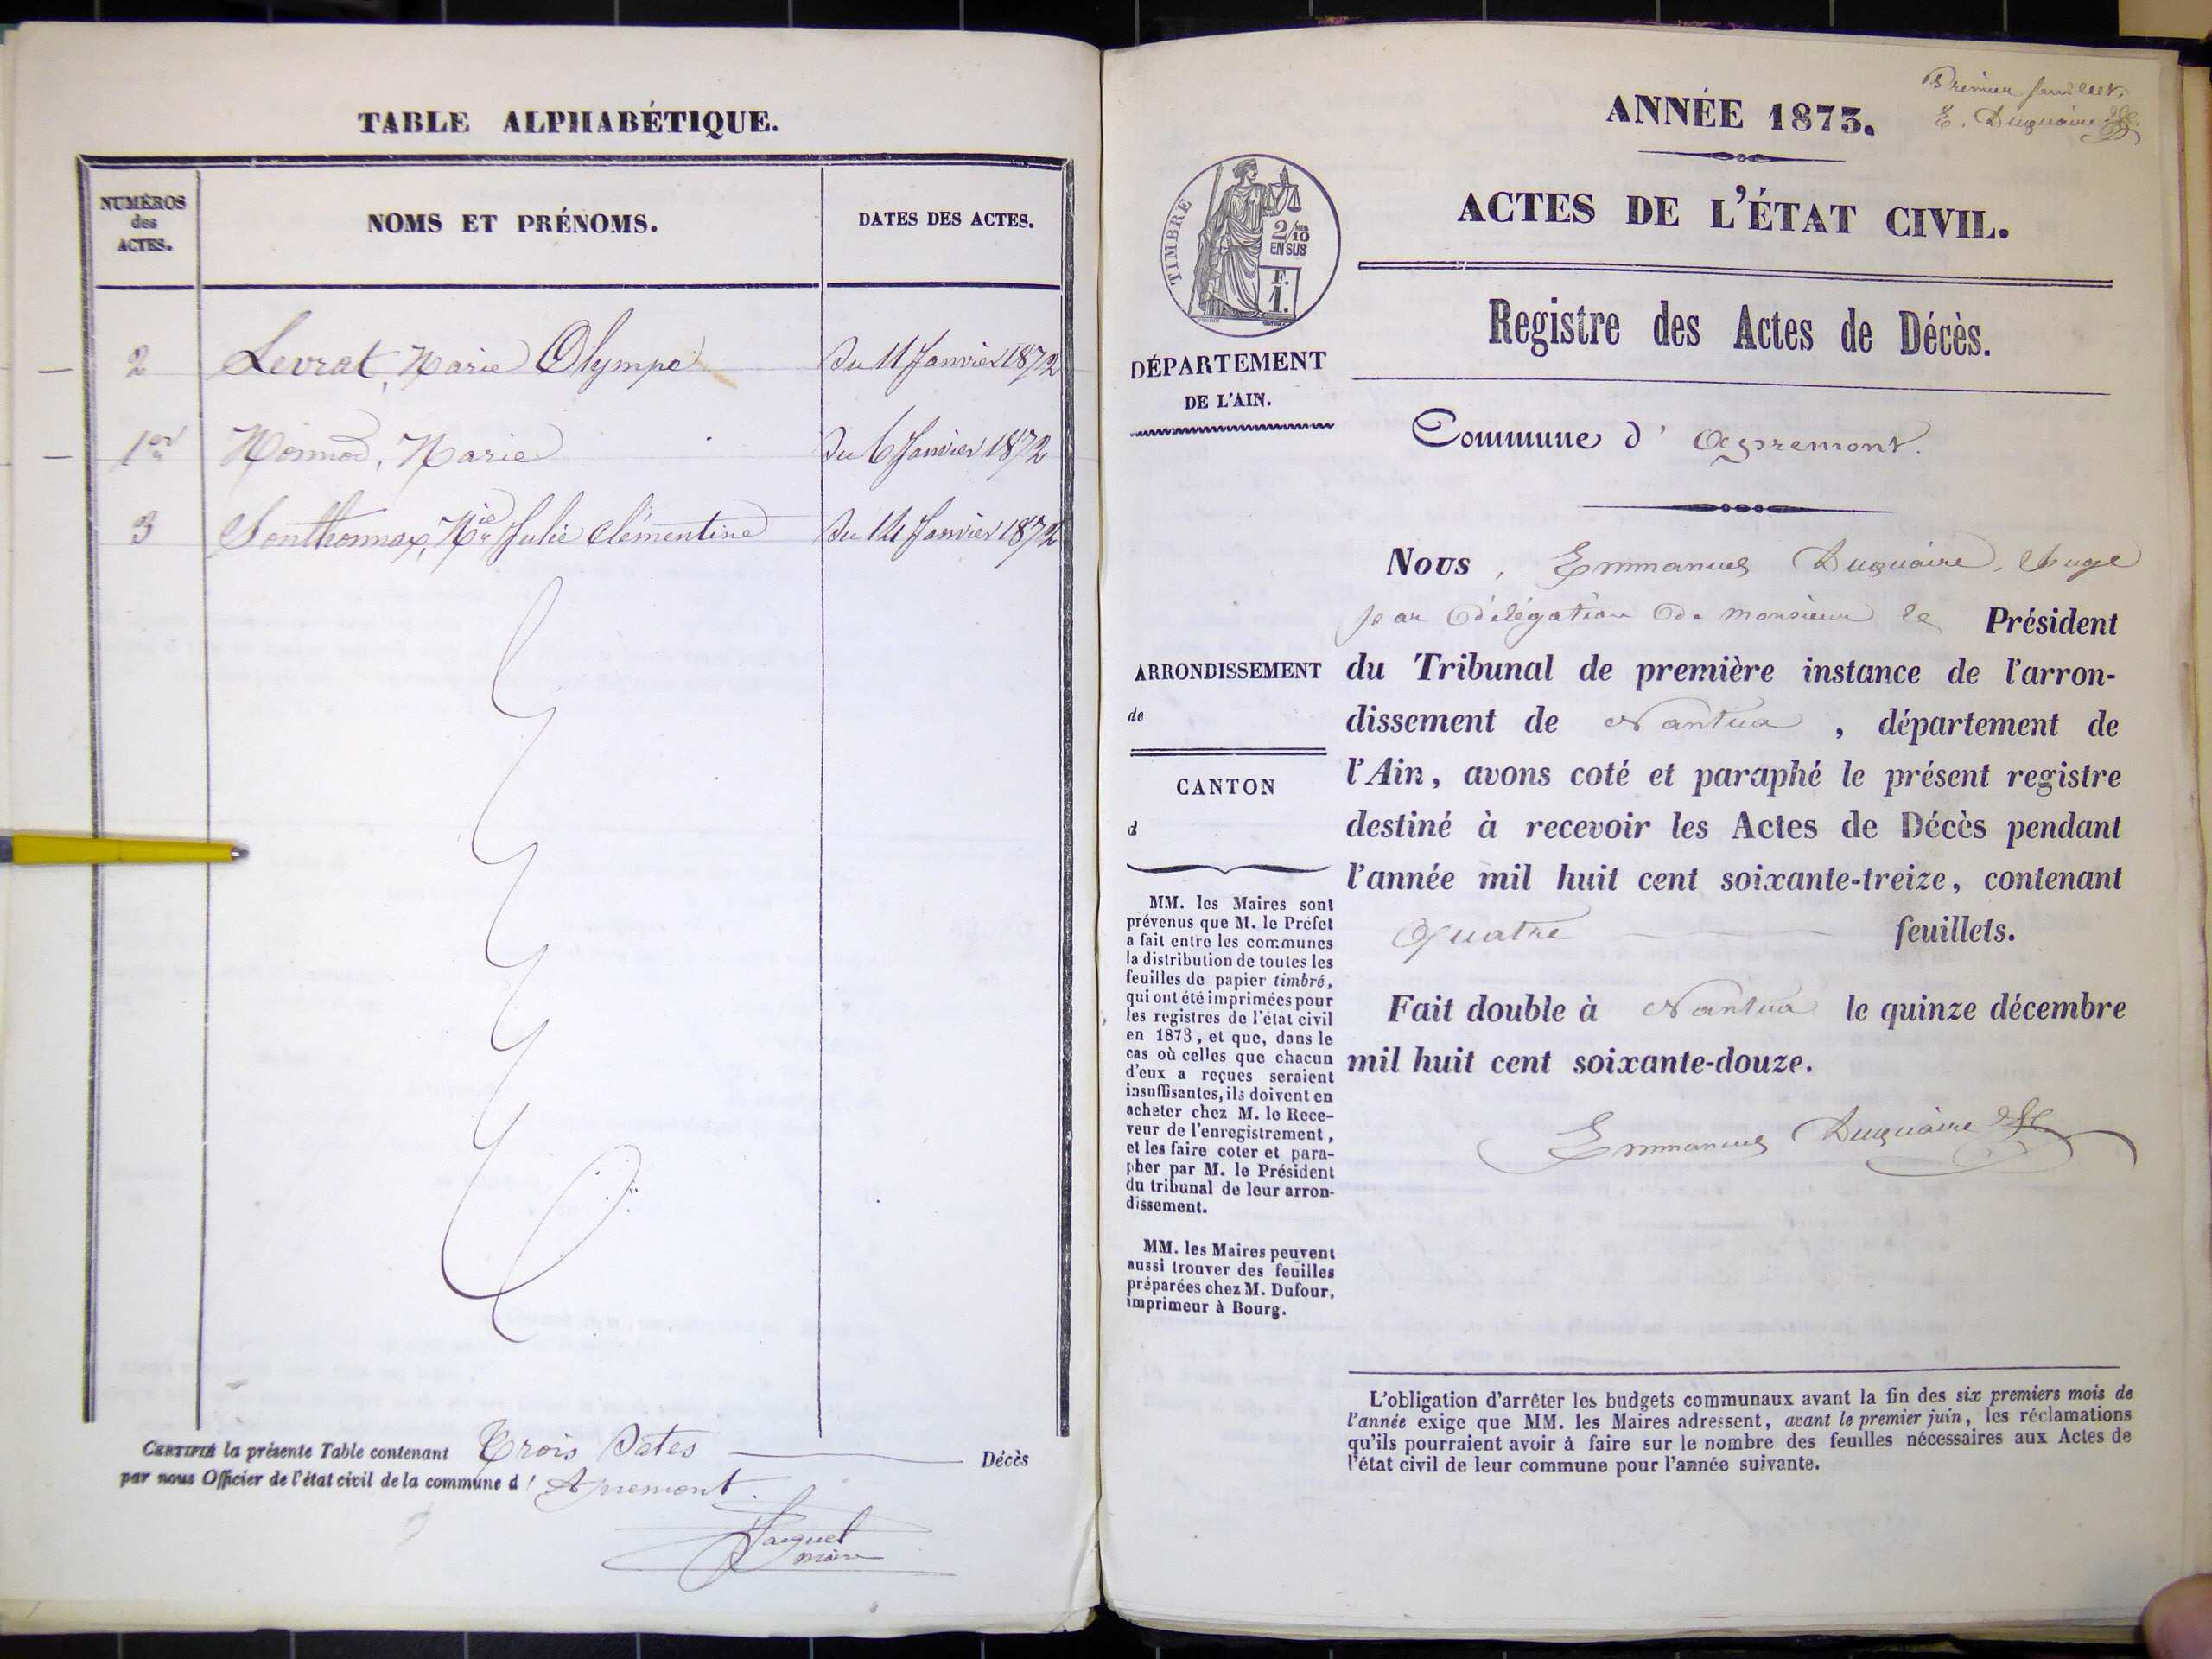 TABLE ALPHABÉTIQUE.
NUMÉROS
des
ACTES.
NOMS ET PRÉNOMS.
DATES DES ACTES.
2 Levrat, Marie Olympe Du 11 Janvier 1872
1er Monnod, Marie Du 6 Janvier 1872
3 Sonthonnax, Mie Julie Clémentine Du 14 Janvier 1872
CERTIFIÉ la présente Table contenant Trois Actes Décès
par nous Officier de l'état civil de la commune d' Apremont.
maire
Premier feuillet.
E. Duquaire
ANNÉE 1873.
ACTES DE L'ÉTAT CIVIL.
TIMBRE
2/10
EN SUS
F.
1.
Registre des Actes de Décès.
DÉPARTEMENT
DE L'AIN.
Commune d' Apremont.
Nous, Emmanuel Duquaire, Juge
par délégation de monsieur le Président
ARRONDISSEMENT
de
CANTON
d
du Tribunal de première instance de l'arron-
dissement de Nantua, département de
l'Ain, avons coté et paraphé le présent registre
destiné à recevoir les Actes de Décès pendant
l'année mil huit cent soixante-treize, contenant
Quatre feuillets.
Fait double à Nantua le quinze décembre
mil huit cent soixante-douze.
Emmanuel Duquaire
MM. les Maires sont
prévenus que M. le Préfet
a fait entre les communes
la distribution de toutes les
feuilles de papier timbré,
qui ont été imprimées pour
les registres de l'état civil
en 1873, et que, dans le
cas où celles que chacun
d'eux a reçues seraient
insuffisantes, ils doivent en
acheter chez M. le Rece-
veur de l'enregistrement,
et les faire coter et para-
pher par M. le Président
du tribunal de leur arron-
dissement.
MM. les Maires peuvent
aussi trouver des feuilles
préparées chez M. Dufour,
imprimeur à Bourg.
L'obligation d'arrêter les budgets communaux avant la fin des six premiers mois de
l'année exige que MM. les Maires adressent, avant le premier juin, les réclamations
qu'ils pourraient avoir à faire sur le nombre des feuilles nécessaires aux Actes de
l'état civil de leur commune pour l'année suivante.